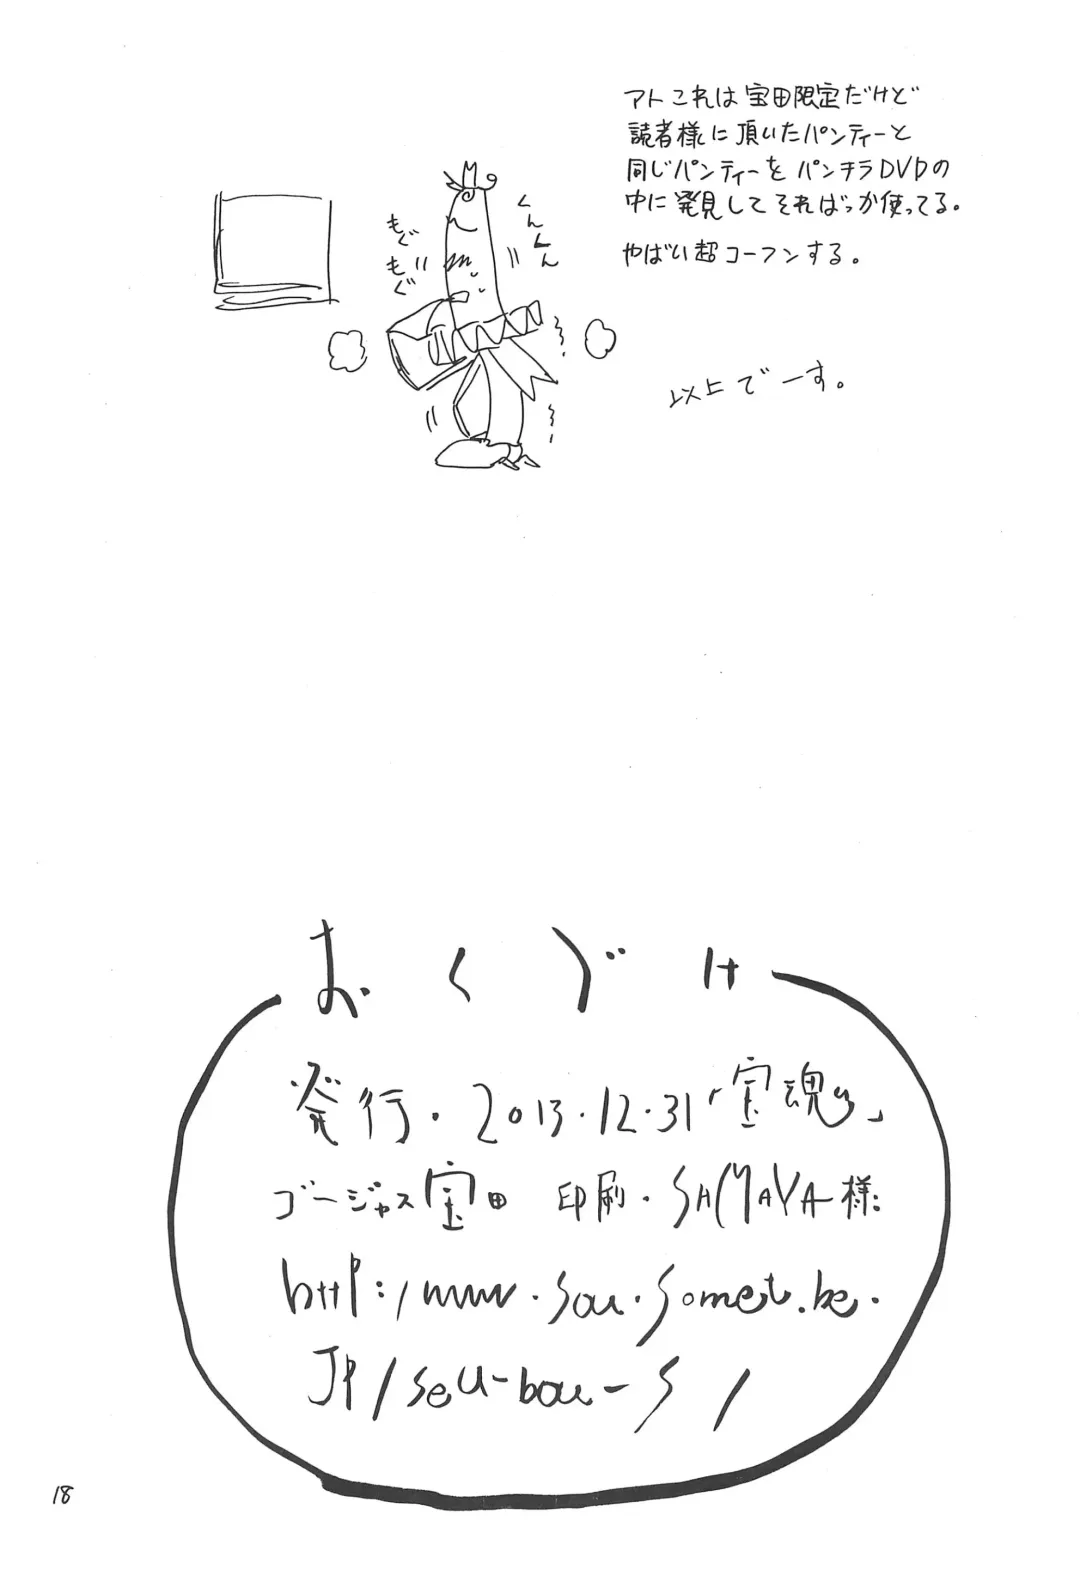 アトこれは宝田限定だけど
読者様に頂いたパンティーと
同じパンティーをパンチラDVDの
中に発見してそればっか使ってる。
やばい超コーフンする。
くんくん
もぐ
もぐ
以上でーす。
おくづけ
発行・2013.12.31「宝魂
ゴージャス宝田 印刷・SAMAYA様
http:/www.sou.somet.be.
JP/seu-bou-s/
18